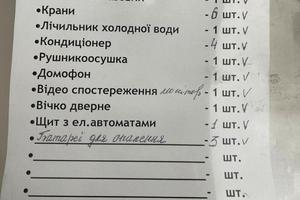 •Крани - 6 шт. V
•Лічильник холодної води - 1 шт. V
•Кондиціонер - 4 шт. V
•Рушникоосушка - 1 шт. V
•Домофон - 1 шт. V
•Відео спостереження монітов - 1 шт. V
•Вічко дверне - 1 шт. V
•Щит з ел.автоматами - 1 шт. V
•Батареї для опалення - 3 шт. V
• - шт.
• - шт.
• - шт.